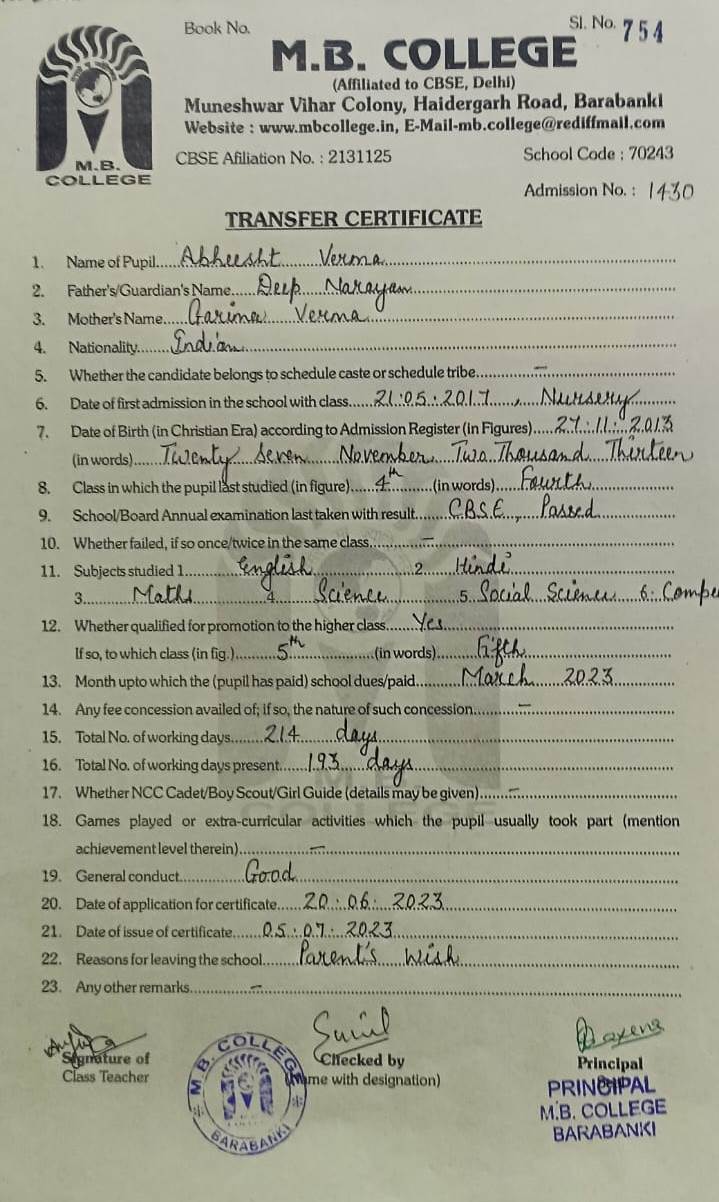 Book No.
Sl. No. 754
M.B. COLLEGE
(Affiliated to CBSE, Delhi)
Muneshwar Vihar Colony, Haidergarh Road, Barabanki
Website : www.mbcollege.in, E-Mail-mb.college@rediffmail.com
CBSE Afiliation No. : 2131125 School Code : 70243
M.B.
COLLEGE
Admission No. : 1430
TRANSFER CERTIFICATE
1. Name of Pupil Abheesht Verma
2. Father's/Guardian's Name Deep Narayan
3. Mother's Name Garima Verma
4. Nationality Indian
5. Whether the candidate belongs to schedule caste or schedule tribe —
6. Date of first admission in the school with class 21.05.2017, Nursery
7. Date of Birth (in Christian Era) according to Admission Register (in Figures) 27.11.2013
(in words) Twenty Seven November Two Thousand Thirteen
8. Class in which the pupil last studied (in figure) 4th (in words) Fourth
9. School/Board Annual examination last taken with result C.B.S.E, Passed
10. Whether failed, if so once/twice in the same class —
11. Subjects studied 1 English 2 Hindi
3 Maths 4 Science 5 Social Science 6. Compe
12. Whether qualified for promotion to the higher class Yes
If so, to which class (in fig.) 5th (in words) Fifth
13. Month upto which the (pupil has paid) school dues/paid March 2023
14. Any fee concession availed of; if so, the nature of such concession —
15. Total No. of working days 214 days
16. Total No. of working days present 193 days
17. Whether NCC Cadet/Boy Scout/Girl Guide (details may be given) —
18. Games played or extra-curricular activities which the pupil usually took part (mention
achievement level therein) —
19. General conduct Good
20. Date of application for certificate 20.06.2023
21. Date of issue of certificate 05.07.2023
22. Reasons for leaving the school Parent's wish
23. Any other remarks —
Signature of
Class Teacher
Sunil
Checked by
(Name with designation)
Saxena
Principal
PRINCIPAL
M.B. COLLEGE
BARABANKI
M.B. COLLEGE
BARABANKI